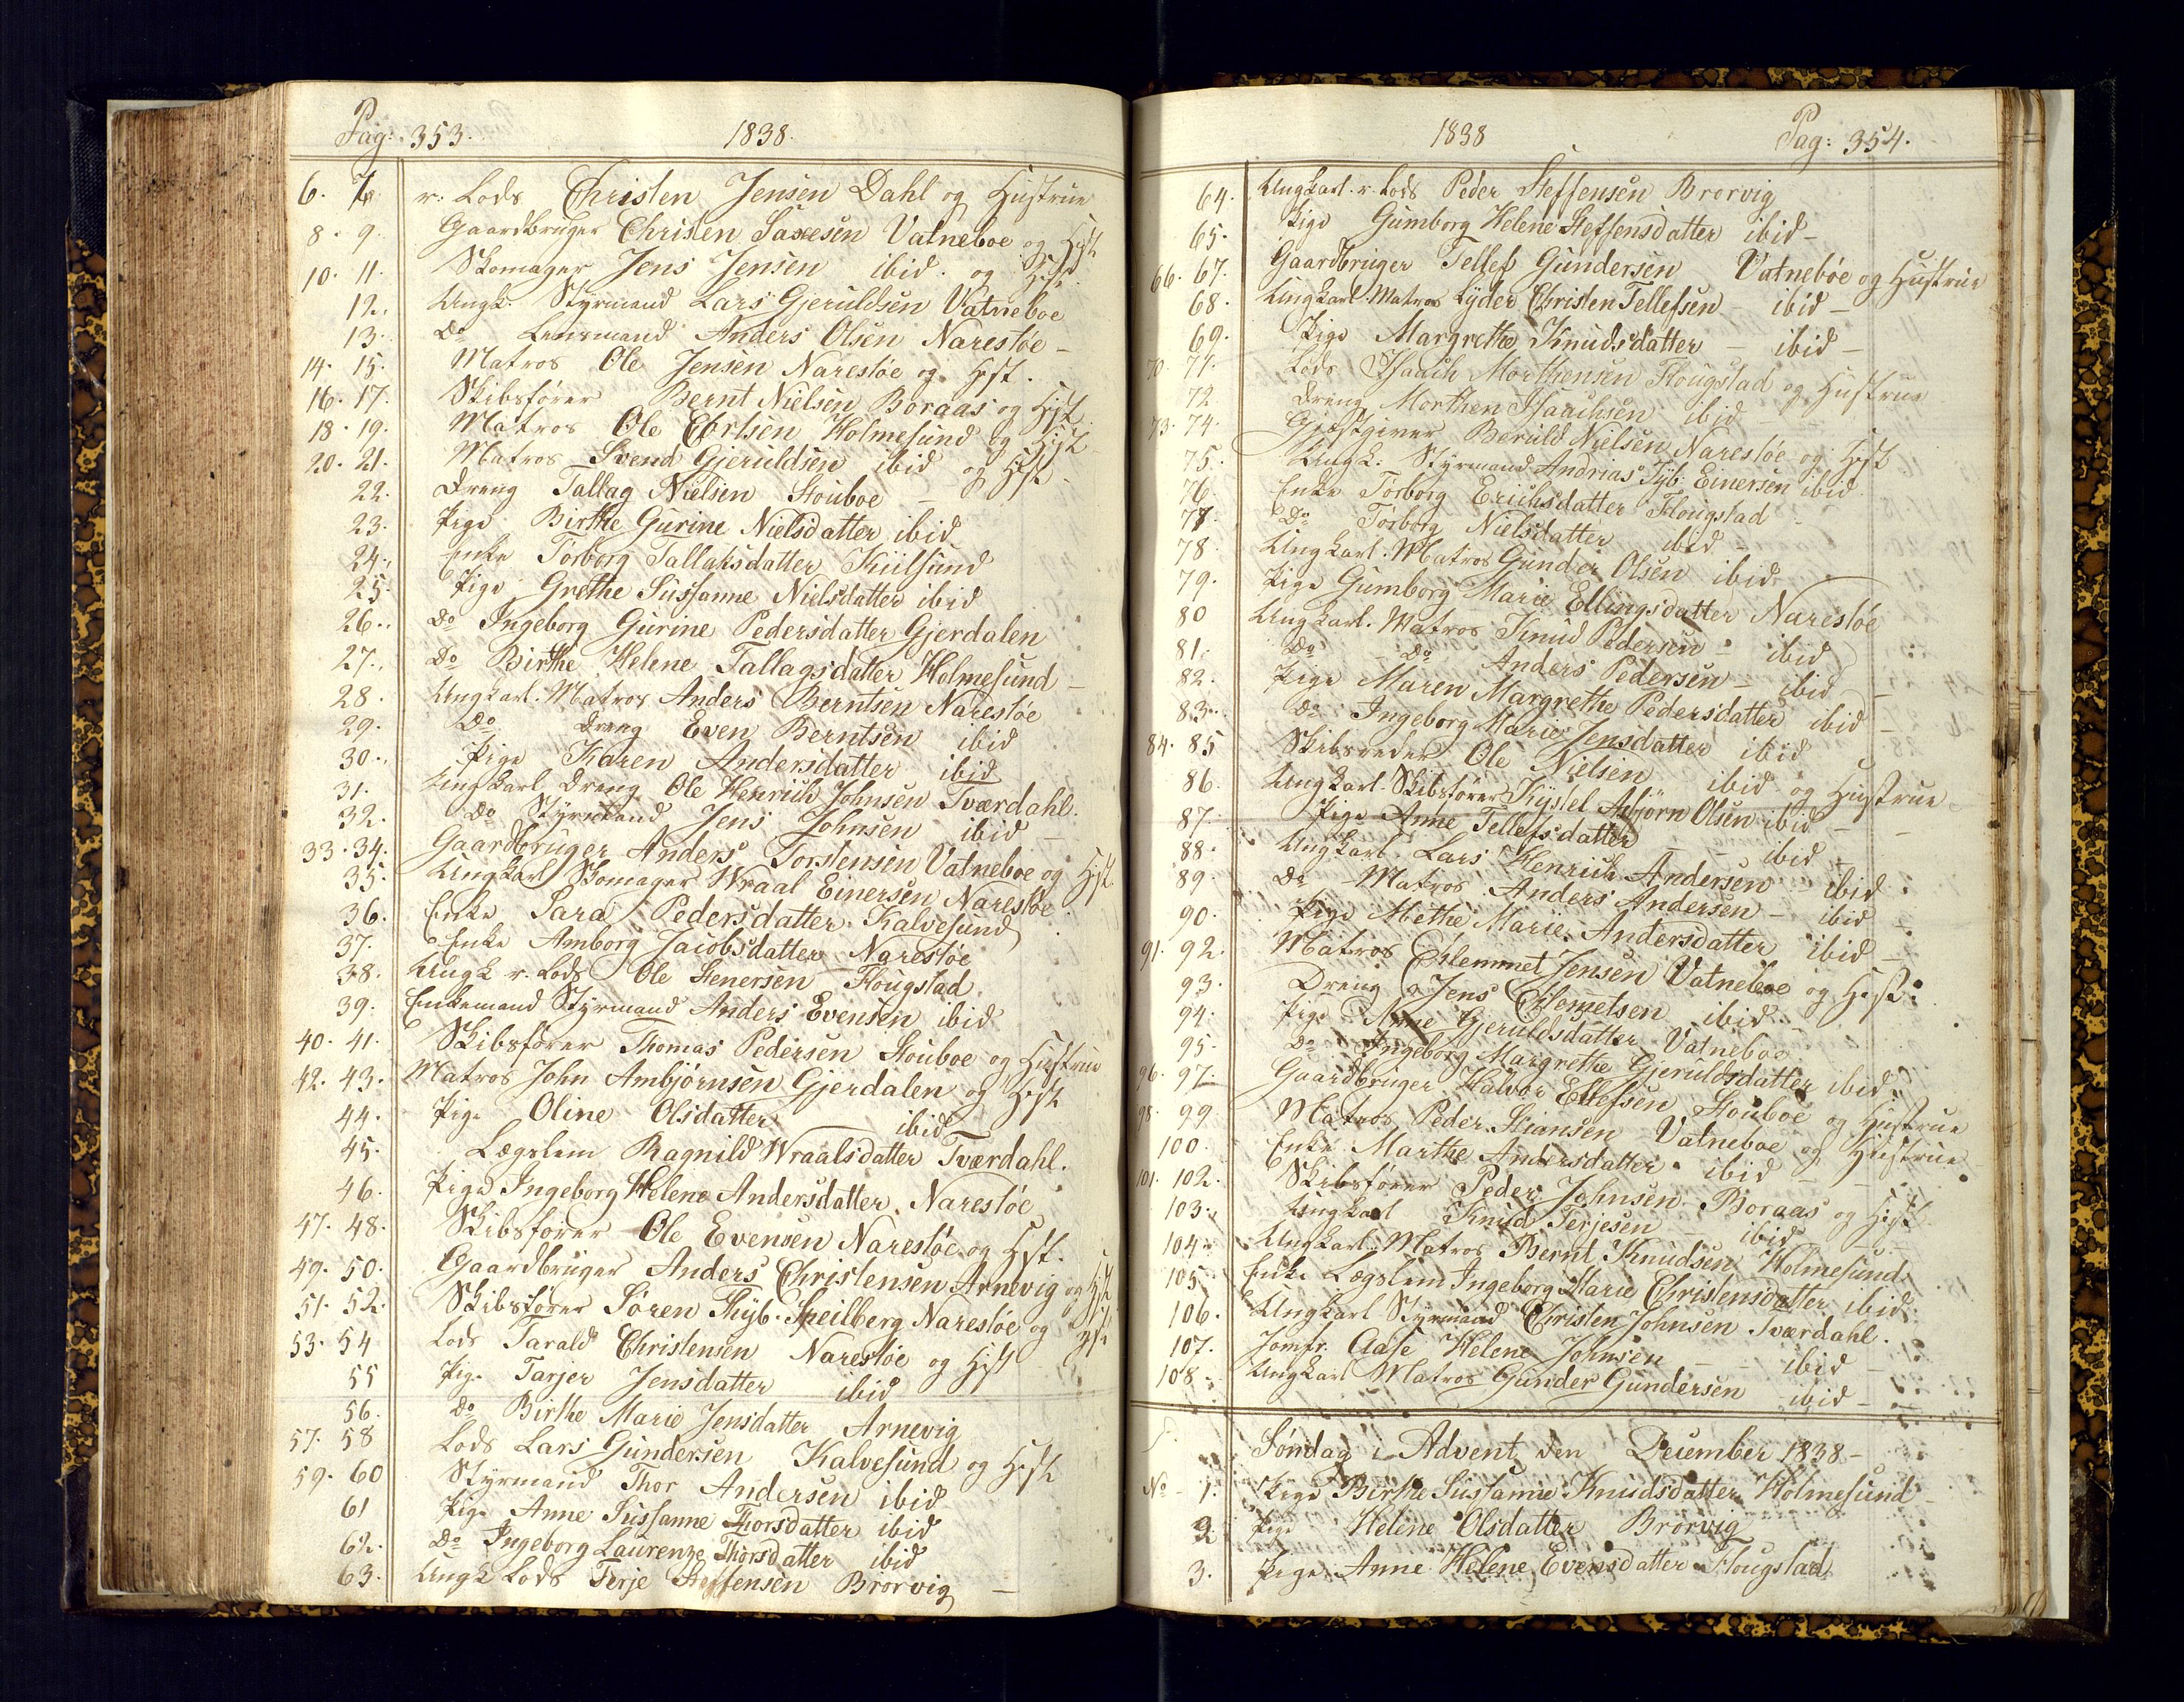 Pag: 353. 1838.
6. 7. r. Lods Christen Jensen Dahl og Hustrue
8. 9. Gaardbruger Christen Saxesen Vatneboe og Hust
10. 11. Skomager Jens Jensen ibid. og Hust
12. Ungk. Styrmand Lars Gjeruldsen Vatneboe
13. Do Lensmand Anders Olsen Narestøe –
14. 15. Matros Ole Jensen Narestøe og Hust.
16. 17. Skibsfører Bernt Nielsen Boraas og Hust
18. 19. Matros Ole Holmesund og Hust
20. 21. Matros Svend Gjeruldsen ibid og Hust –
22. Dreng Tallag Nielsen Stouboe –
23. Pige Birthe Gurine Nielsdatter ibid
24. Enke Torborg Tallaksdatter Kiilsund
25. Pige Grethe Susanne Nielsdatter ibid
26. Do Ingeborg Gurine Pedersdatter Gjerdalen
27. Do Birthe Helene Tallagsdatter Holmesund –
28. Ungkarl. Matros Anders Berntsen Narestøe
29. Do Dreng Even Berntsen ibid
30. Pige Karen Andersdatter ibid
31. Ungkarl Dreng Ole Henrich Johnsen Tværdahl.
32. Do Styrmand Jens Johnsen ibid –
33. 34. Gaardbruger Anders Torstensen Vatneboe og Hust.
35. Ungkarl Skomager Wraal Einersen Narestøe
36. Enke Sara Pedersdatter Kalvesund
37. Enke Amborg Jacobsdatter Narestøe
38. Ungk r. Lods Ole Stenersen Flougstad
39. Enkemand Styrmand Anders Evensen ibid
40. 41. Skibsfører Thomas Pedersen Stouboe og Hustrue
42. 43. Matros John Ambjørnsen Gjerdalen og Hust
44. Pige Oline Olsdatter ibid
45. Lægslem Ragnild Wraalsdatter Tværdahl.
46. Pige Ingeborg Helene Andersdatter Narestøe
47. 48. Skibsfører Ole Evensen Narestøe og Hust.
49. 50. Gaardbruger Anders Christensen Arnevig og Hust
51. 52. Skibsfører Søren Thyb. Speilberg Narestøe og Hust
53. 54 Lods Tarald Christensen Narestøe og Hust
55 Pige Tarjer Jensdatter ibid
56. Do Birthe Marie Jensdatter Arnevig
57. 58 Lods Lars Gundersen Kalvesund og Hust
59. 60 Styrmand Thor Andersen ibid
61 Pige Anne Susanne Thorsdatter ibid
62. Do Ingeborg Laurenze Thorsdatter ibid
63. Ungk Lods Terje Steffensen Brorvig –
1838 Pag: 354.
64. Ungkarl. r. Lods Peder Steffensen Brorvig
65. Pige Gumborg Helene Steffensdatter ibid –
66. 67. Gaardbruger Tellef Gundersen Vatnebøe og Hustrue
68. Ungkarl. Matros Lyder Christen Tellefsen ibid –
69. Pige Margrethe Knudsdatter – ibid –
70. 71. Lods Isaach Morthensen Flougstad og Hustrue
72 Dreng Morthen Isaachsen ibid
73. 74. Gjestgiver Beruld Nielsen Narestøe og Hust
75. Ungk. Styrmand Andrias Tyb. Einersen ibid
76. Enke Torborg Erichsdatter Flougstad
77. Do Torborg Nielsdatter ibid –
78. Ungkarl. Matros Gunder Olsen ibid
79. Pige Gumborg Marie Ellingsdatter Narestøe
80 Ungkarl. Matros Knud Pedersen – ibid
81. Do Do Anders Pedersen – ibid
82. Pige Maren Margrethe Pedersdatter ibid –
83. Do Ingeborg Marie Jensdatter ibid
84. 85 Skibsreder Ole Nielsen ibid og Hustrue
86. Ungkarl. Skibsfører Kystel Asbjørn Olsen ibid –
87. Pige Anne Tellefsdatter – ibid –
88. Ungkarl Lars Henrich Andersen – ibid
89. Do Matros Anders Andersen – ibid
90. Pige Methe Marie Andersdatter ibid –
91. 92. Matros Clemmet Jensen Vatneboe og Hust
93. Dreng Jens Clemetsen ibid –
94. Pige Anne Gjeruldsdatter Vatneboe
95. Do Ingeborg Margrethe Gjeruldsdatter ibid
96. 97. Gaardbruger Halvor Ellefsen Stouboe og Hustrue
98. 99. Matros Peder Vatneboe og Hustrue
100. Enke Marthe Andersdatter ibid –
101. 102. Skibsfører Peder Johnsen Boraas og Hust
103. Ungkarl Knud Terjesen – ibid –
104. Ungkarl. Matros Bernt Knudsen Holmesund
105 Enke Lægslem Ingeborg Marie Christensdatter ibid
106. Ungkarl Styrmand Christen Johnsen Tværdahl.
107. Jomfr. Aase Helene Johnsen – ibid –
108. Ungkarl Matros Gunder Gundersen ibid –
Søndag i Advent den December 1838 –
No 1. Pige Birthe Susanne Knudsdatter Holmesund
2. Pige Helene Olsdatter Brorvig
3. Pige Anne Helene Evensdatter Flougstad